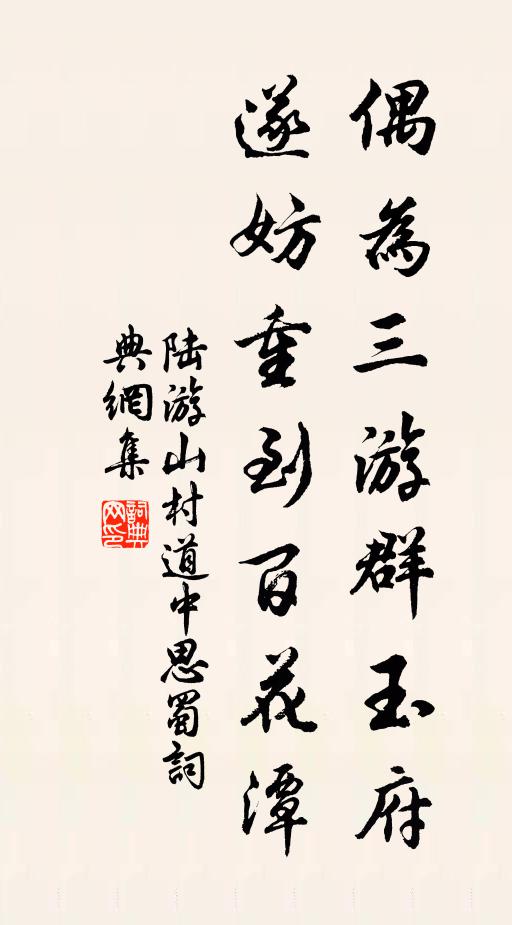 偶為三游群玉府
遂妨重到百花潭
陆游山村道中思蜀詞
典網集
詞典网印